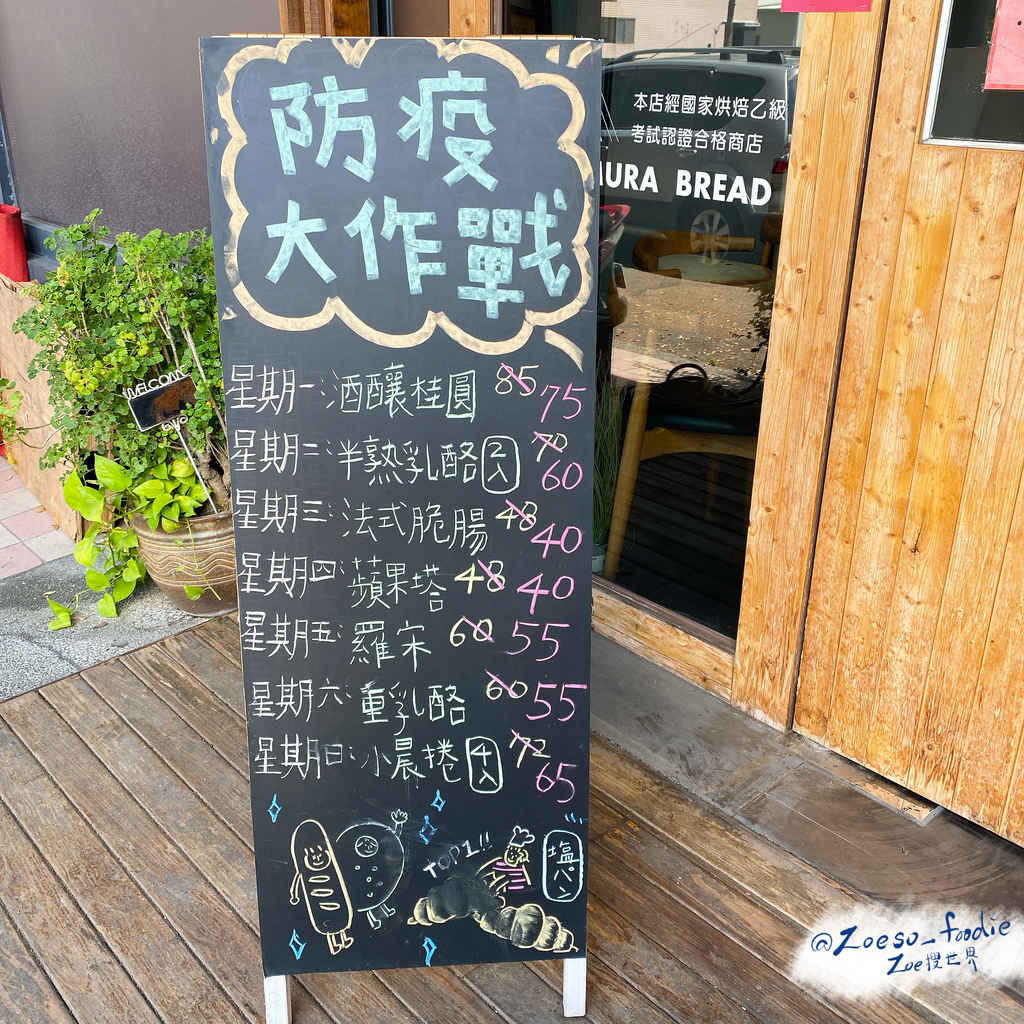 防疫
大作戰
星期一:酒釀桂圓 85 75
星期二:半熟乳酪 2入 70 60
星期三:法式脆腸 48 40
星期四:蘋果塔 48 40
星期五:羅宋 60 55
星期六:重乳酪 60 55
星期日:小晨捲 4入 72 65
TOP1!!
塩パン
WELCOME
本店經國家烘焙乙級
考試認證合格商店
URA BREAD
@Zoeso_foodie
Zoe搜世界